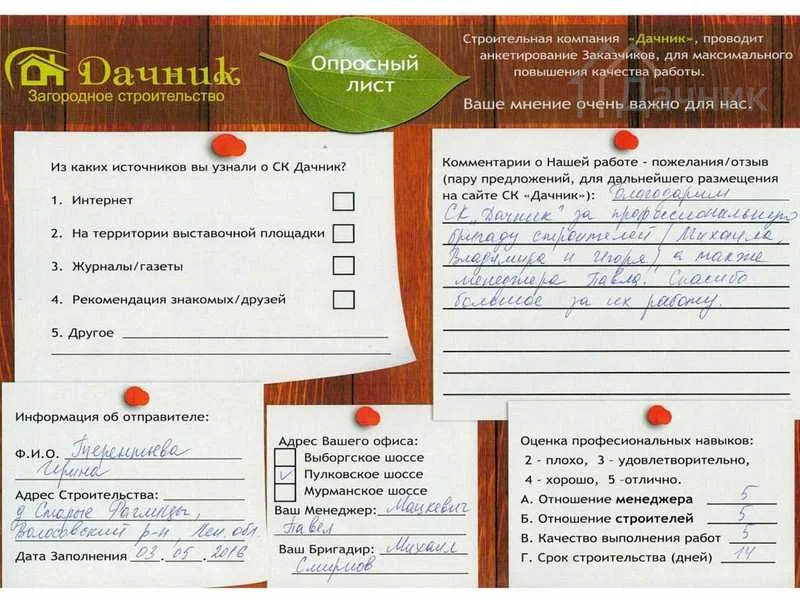 Дачник
Загородное строительство
Опросный
лист
Строительная компания «Дачник», проводит
анкетирование Заказчиков, для максимального
повышения качества работы.
Ваше мнение очень важно для нас.
Дачник
Из каких источников вы узнали о СК Дачник?
1. Интернет
2. На территории выставочной площадки
3. Журналы/газеты
4. Рекомендация знакомых/друзей
5. Другое
Комментарии о Нашей работе - пожелания/отзыв
(пару предложений, для дальнейшего размещения
на сайте СК «Дачник»): Благодарим
СК „Дачник" за профессиональную
бригаду строителей (Михаила,
Владимира и Игоря), а также
менеджера Павла. Спасибо
большое за их работу.
Информация об отправителе:
Ф.И.О. Терентьева
Ирина
Адрес Строительства:
д Старые Раглицы,
Волосовский р-н, Лен. обл.
Дата Заполнения 03.05.2016
Адрес Вашего офиса:
Выборгское шоссе
✓ Пулковское шоссе
Мурманское шоссе
Ваш Менеджер: Мацкевич
Павел
Ваш Бригадир: Михаил
Смирнов
Оценка професиональных навыков:
2 - плохо, 3 - удовлетворительно,
4 - хорошо, 5 -отлично.
А. Отношение менеджера 5
Б. Отношение строителей 5
В. Качество выполнения работ 5
Г. Срок строительства (дней) 14